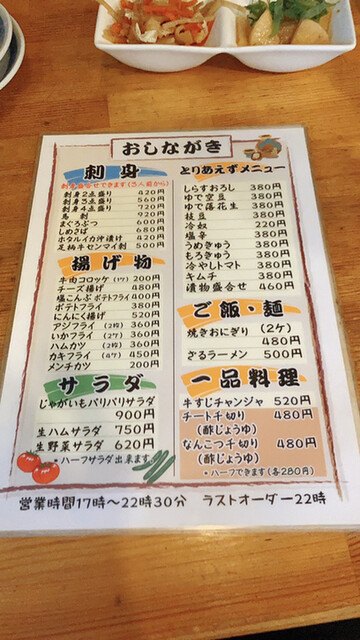 おしながき
刺身
刺身盛合せできます(5人前から)
刺身2点盛り 420円
刺身3点盛り 560円
刺身4点盛り 720円
馬刺 920円
まぐろぶつ 600円
しめさば 680円
ホタルイカ沖漬け 420円
足柄牛センマイ刺 500円
揚げ物
牛肉コロッケ(1ケ) 200円
チーズ揚げ 480円
塩こんぶポテトフライ 400円
ポテトフライ 380円
にんにく揚げ 520円
アジフライ(2枚) 360円
いかフライ(2枚) 360円
ハムカツ(2枚) 360円
カキフライ(4ケ) 450円
メンチカツ 200円
サラダ
じゃがいもパリパリサラダ
900円
生ハムサラダ 750円
生野菜サラダ 620円
*ハーフサラダ出来ます
とりあえずメニュー
しらすおろし 380円
ゆで空豆 380円
ゆで落花生 380円
枝豆 380円
冷奴 220円
塩辛 380円
うめきゅう 380円
もろきゅう 380円
冷やしトマト 380円
キムチ 380円
漬物盛合せ 460円
ご飯・麺
焼きおにぎり(2ケ)
480円
ざるラーメン 500円
一品料理
牛すじチャンジャ 520円
チートチ切り 480円
(酢じょうゆ)
なんこつ千切り 480円
(酢じょうゆ)
*ハーフできます(各280円)
営業時間17時〜22時30分 ラストオーダー22時